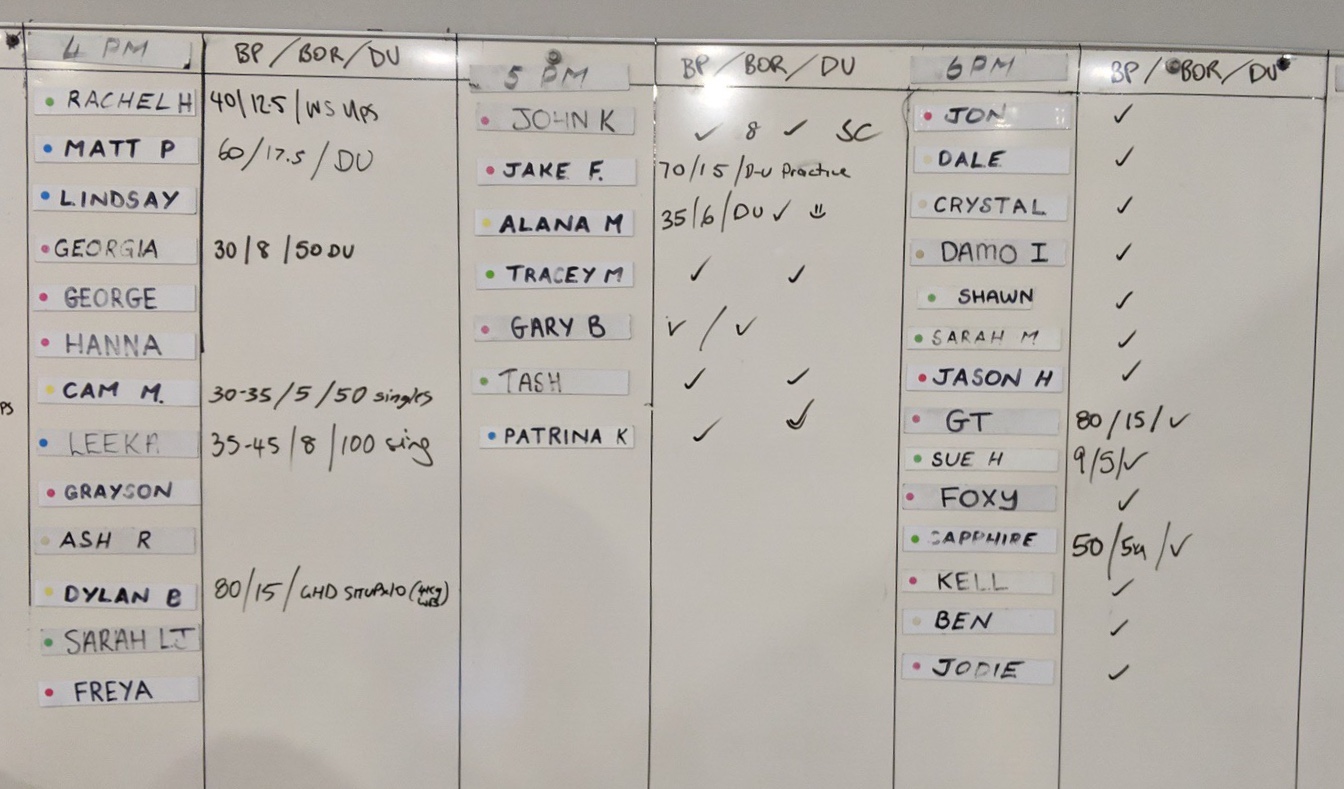 4 PM BP/BOR/DU
RACHEL H 40/12.5/WS Ups
MATT P 60/17.5/DU
LINDSAY
GEORGIA 30/8/50 DU
GEORGE
HANNA
CAM M. 30-35/5/50 singles
PS
LEEKA 35-45/8/100 sing
GRAYSON
ASH R
DYLAN B 80/15/GHD SITUPS 10 (4kg WB)
SARAH LJ
FREYA
5 PM BP/BOR/DU
JOHN K ✓ 8 ✓ SC
JAKE F. 70/15/D-U Practice
ALANA M 35/6/DU ✓
TRACEY M ✓ ✓
GARY B ✓/✓
TASH ✓ ✓
PATRINA K ✓ ✓
6 PM BP/BOR/DU
JON ✓
DALE ✓
CRYSTAL ✓
DAMO I ✓
SHAWN ✓
SARAH M ✓
JASON H ✓
GT 80/15/✓
SUE H 9/5/✓
FOXY ✓
SAPPHIRE 50/5/✓
KELL ✓
BEN ✓
JODIE ✓